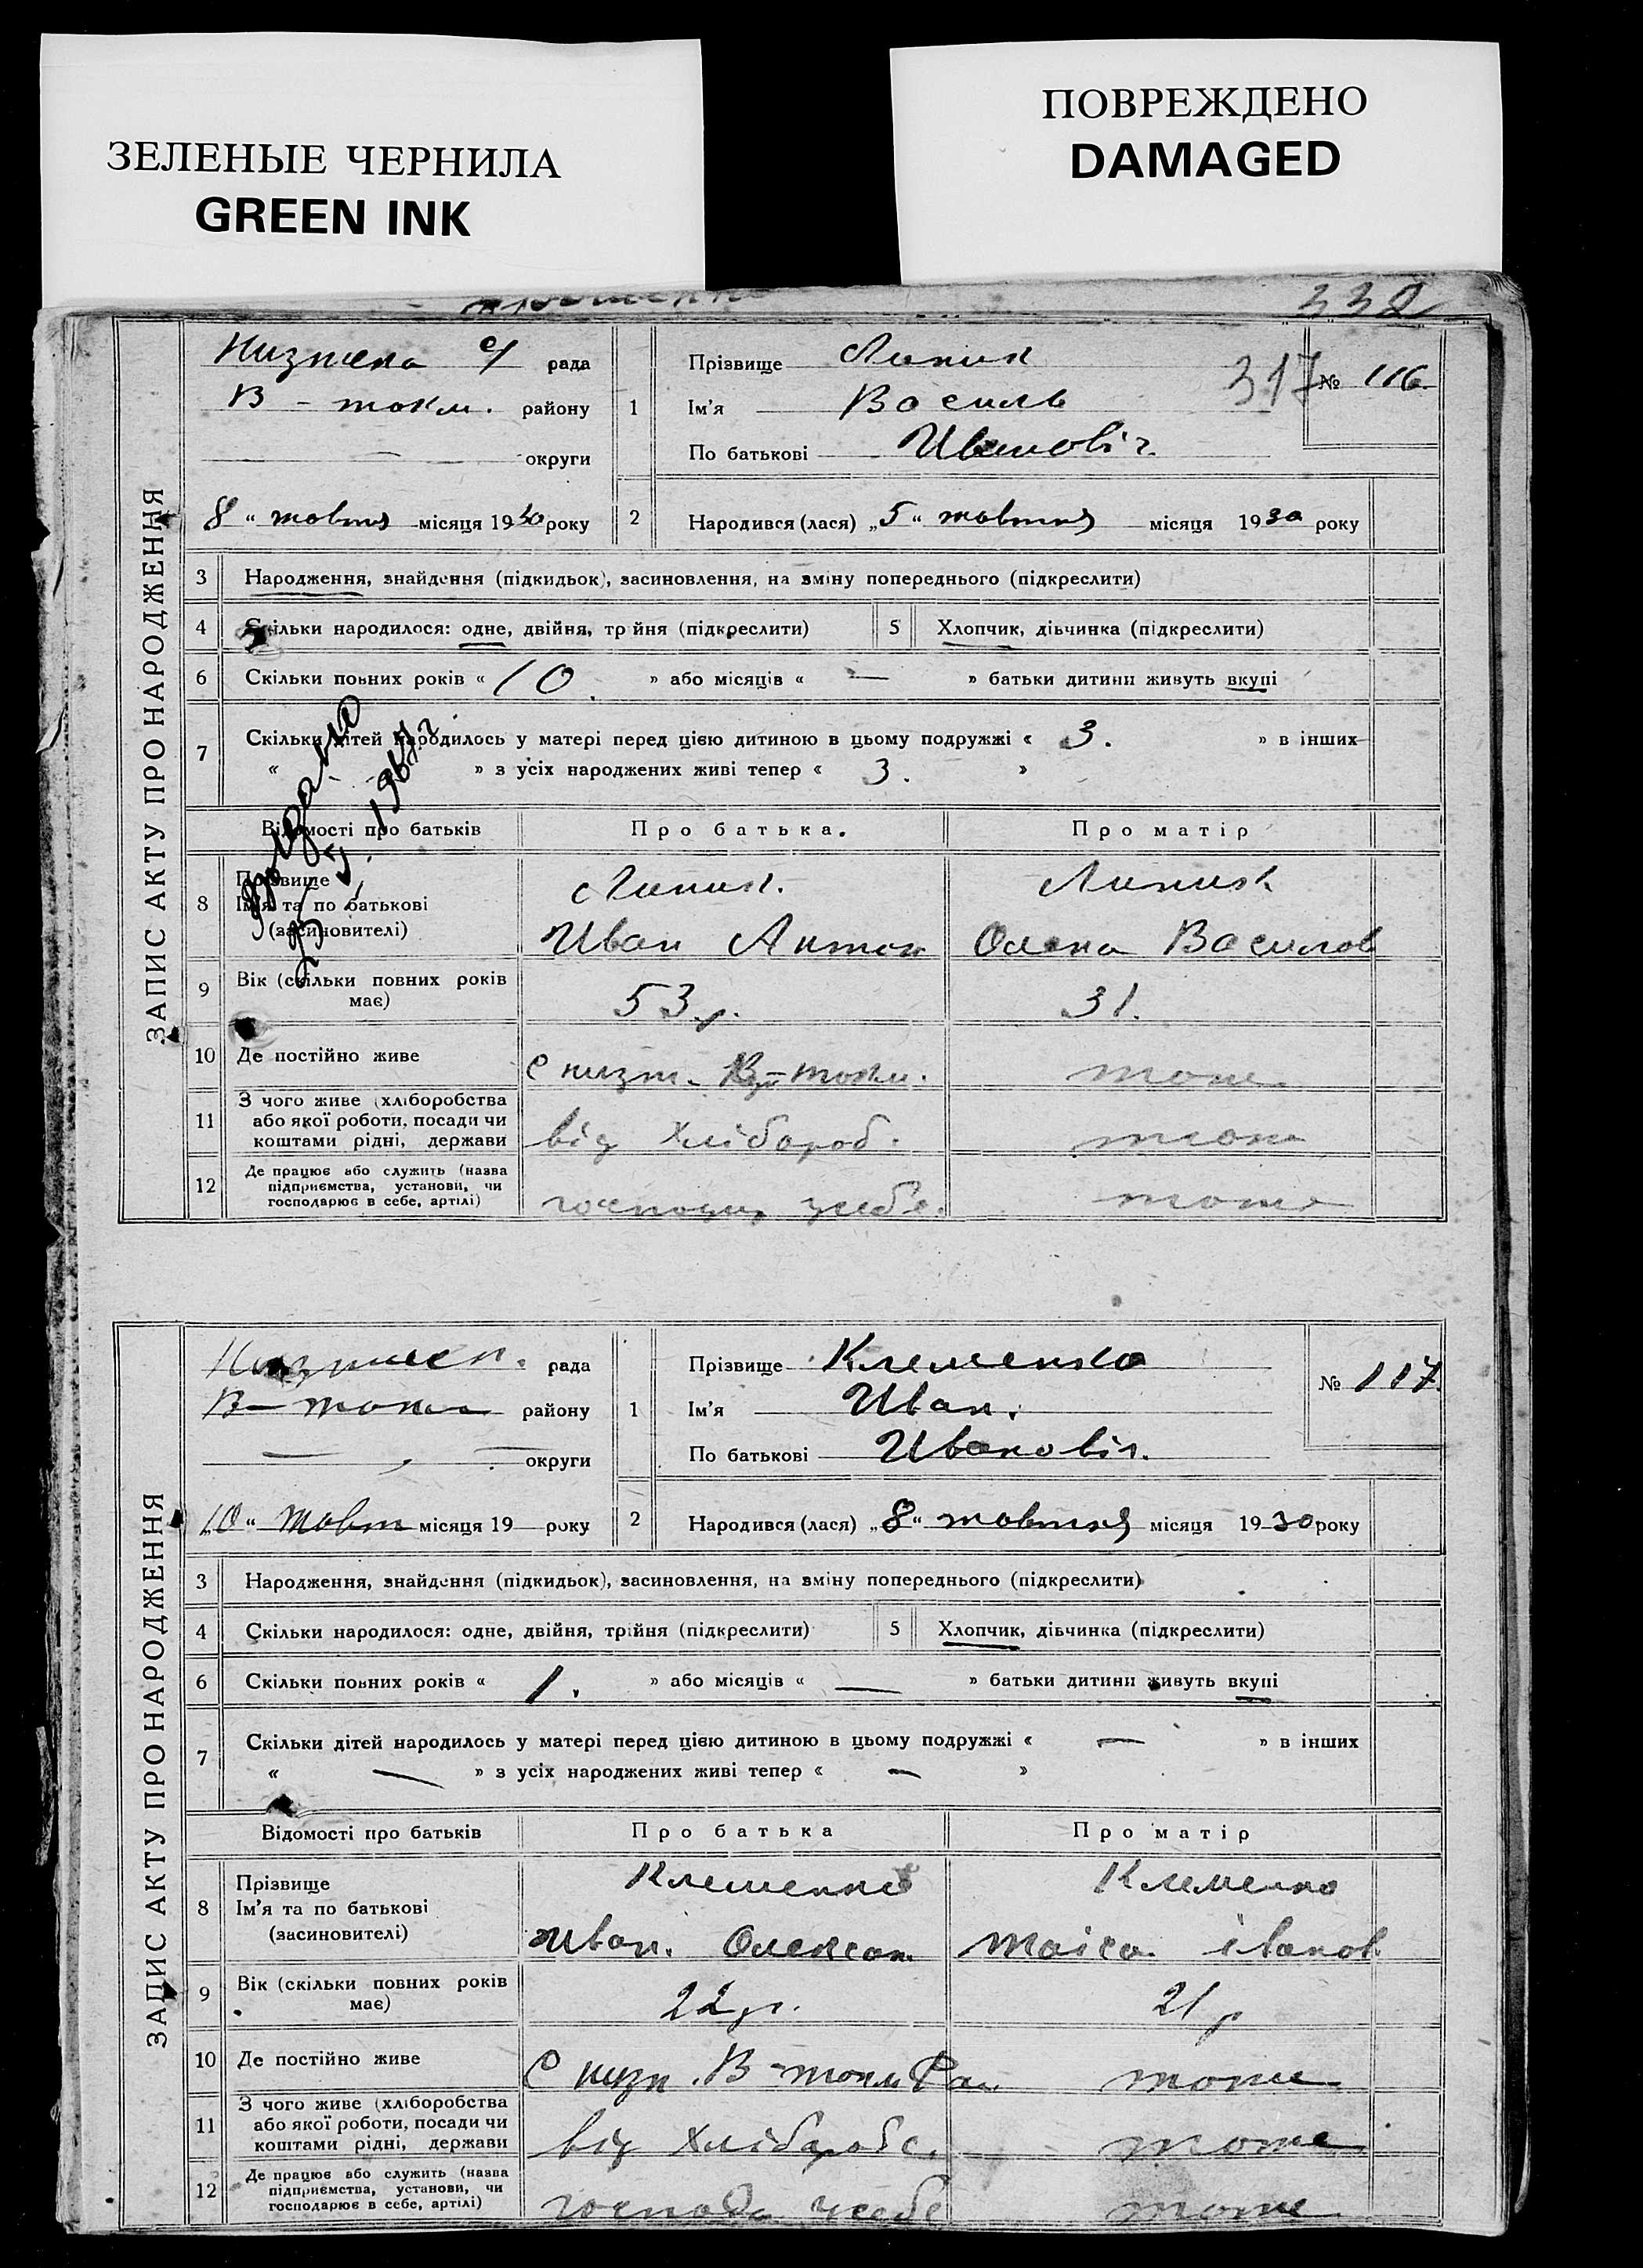 ЗЕЛЕНЫЕ ЧЕРНИЛА
GREEN INK
ПОВРЕЖДЕНО
DAMAGED
332
ЗАПИС АКТУ ПРО НАРОДЖЕННЯ
рада
В - токм. району
округи
8 " жовтня місяця 1930 року
1 Прізвище
Ім'я Василь
По батькові Иванович
317
№ 116
2 Народився (лася) „5" жовтня місяця 1930 року
3 Народження, знайдення (підкидьок), засиновлення, на зміну попереднього (підкреслити)
4 Скільки народилося: одне, двійня, трійня (підкреслити) 5 Хлопчик, дівчинка (підкреслити)
6 Скільки повних років « 10. » або місяців « — » батьки дитини живуть вкупі
7 Скільки дітей народилось у матері перед цією дитиною в цьому подружжі « 3. » в інших
« » з усіх народжених живі тепер « 3. »
Відомості про батьків Про батька. Про матір
8 Прізвище
Ім'я та по батькові Иван Антон Олена Василов
(засиновителі)
9 Вік (скільки повних років має) 53 р. 31.
10 Де постійно живе тоже
11 З чого живе (хліборобства
або якої роботи, посади чи
коштами рідні, держави від Хлібороб. тоже
12 Де працює або служить (назва
підприємства, установи, чи
господарює в себе, артілі) тоже
ЗАПИС АКТУ ПРО НАРОДЖЕННЯ
рада
В - токм району
округи
„10" жовт місяця 19 року
1 Прізвище Клеменко
Ім'я Иван.
По батькові Ивановіч.
№ 117
2 Народився (лася) „8" жовтня місяця 1930 року
3 Народження, знайдення (підкидьок), засиновлення, на зміну попереднього (підкреслити)
4 Скільки народилося: одне, двійня, трійня (підкреслити) 5 Хлопчик, дівчинка (підкреслити)
6 Скільки повних років « 1. » або місяців « — » батьки дитини живуть вкупі
7 Скільки дітей народилось у матері перед цією дитиною в цьому подружжі « — » в інших
« — » з усіх народжених живі тепер « — »
Відомості про батьків Про батька Про матір
8 Прізвище Клеменко Клеменко
Ім'я та по батькові Иван. Олексан. Таіса іванов
(засиновителі)
9 Вік (скільки повних років має) 22 р. 21 р
10 Де постійно живе тоже
11 З чого живе (хліборобства
або якої роботи, посади чи
коштами рідні, держави від Хлібороб тоже
12 Де працює або служить (назва
підприємства, установи, чи
господарює в себе, артілі) тоже